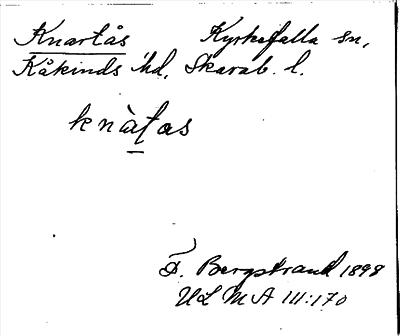 Knartås Kyrkefalla sn,
Kåkinds hd, Skarab. l.
knàtas
F. Bergstrand 1898
ULMA 111:170